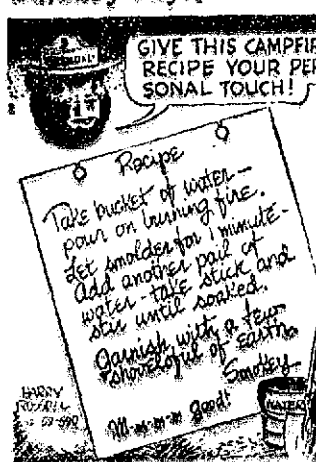 GIVE THIS CAMPFIR
RECIPE YOUR PER
SONAL TOUCH!
Recipe
Take bucket of water—
pour on burning fire.
Let smolder for 1 minute-
Add another pail of
water - take stick and
stir until soaked.
Garnish with a few
shovelsful of earth.
Smokey
M-m-m-m good!
HARRY
ROSSOLL
WATER